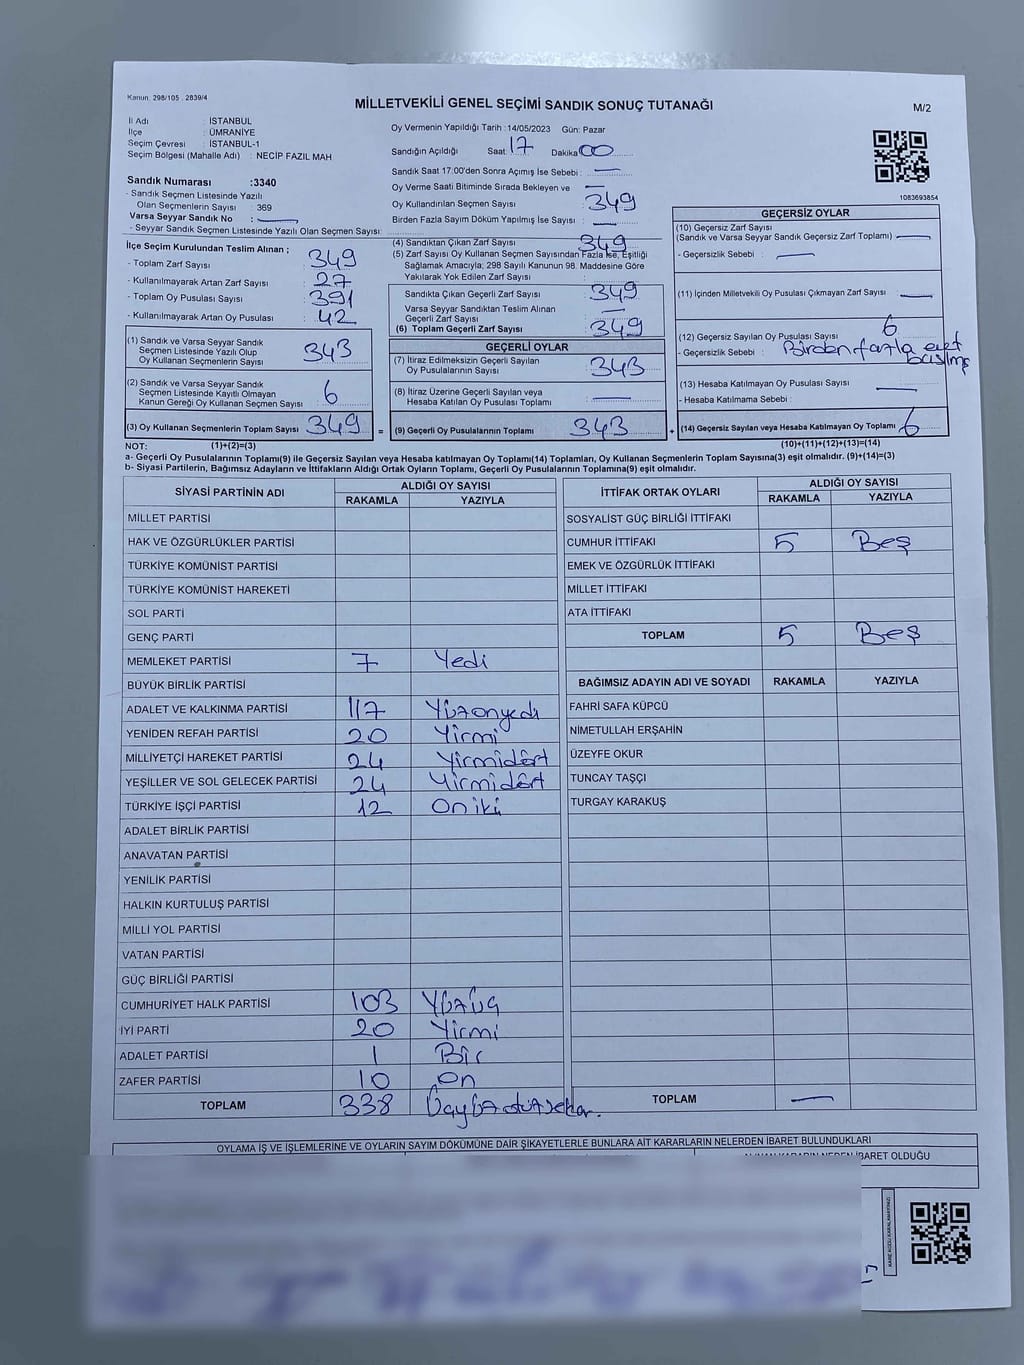 Kanun: 298/105 , 2839/4
MİLLETVEKİLİ GENEL SEÇİMİ SANDIK SONUÇ TUTANAĞI
M/2
İl Adı : İSTANBUL
İlçe : ÜMRANİYE
Seçim Çevresi : İSTANBUL-1
Seçim Bölgesi (Mahalle Adı) : NECİP FAZIL MAH
Sandık Numarası :3340
- Sandık Seçmen Listesinde Yazılı
Olan Seçmenlerin Sayısı : 369
Varsa Seyyar Sandık No :
- Seyyar Sandık Seçmen Listesinde Yazılı Olan Seçmen Sayısı:
Oy Vermenin Yapıldığı Tarih : 14/05/2023 Gün: Pazar
Sandığın Açıldığı Saat 17 Dakika 00
Sandık Saat 17:00'den Sonra Açımış İse Sebebi :
Oy Verme Saati Bitiminde Sırada Bekleyen ve
Oy Kullandırılan Seçmen Sayısı : 349
Birden Fazla Sayım Döküm Yapılmış İse Sayısı :
1083693854
İlçe Seçim Kurulundan Teslim Alınan ;
- Toplam Zarf Sayısı : 349
- Kullanılmayarak Artan Zarf Sayısı : 27
- Toplam Oy Pusulası Sayısı : 391
- Kullanılmayarak Artan Oy Pusulası : 42
(1) Sandık ve Varsa Seyyar Sandık
Seçmen Listesinde Yazılı Olup
Oy Kullanan Seçmenlerin Sayısı 343
(2) Sandık ve Varsa Seyyar Sandık
Seçmen Listesinde Kayıtlı Olmayan
Kanun Gereği Oy Kullanan Seçmen Sayısı 6
(3) Oy Kullanan Seçmenlerin Toplam Sayısı 349
(4) Sandıktan Çıkan Zarf Sayısı 349
(5) Zarf Sayısı Oy Kullanan Seçmen Sayısından Fazla İse, Eşitliği
Sağlamak Amacıyla; 298 Sayılı Kanunun 98. Maddesine Göre
Yakılarak Yok Edilen Zarf Sayısı :
Sandıkta Çıkan Geçerli Zarf Sayısı 349
Varsa Seyyar Sandıktan Teslim Alınan
Geçerli Zarf Sayısı
(6) Toplam Geçerli Zarf Sayısı 349
GEÇERLİ OYLAR
(7) İtiraz Edilmeksizin Geçerli Sayılan
Oy Pusulalarının Sayısı 343
(8) İtiraz Üzerine Geçerli Sayılan veya
Hesaba Katılan Oy Pusulası Toplamı
= (9) Geçerli Oy Pusulalarının Toplamı 343
GEÇERSİZ OYLAR
(10) Geçersiz Zarf Sayısı
(Sandık ve Varsa Seyyar Sandık Geçersiz Zarf Toplamı)
- Geçersizlik Sebebi :
(11) İçinden Milletvekili Oy Pusulası Çıkmayan Zarf Sayısı
(12) Geçersiz Sayılan Oy Pusulası Sayısı 6
- Geçersizlik Sebebi : Birden fazla evet basılmış
(13) Hesaba Katılmayan Oy Pusulası Sayısı
- Hesaba Katılmama Sebebi :
+ (14) Geçersiz Sayılan veya Hesaba Katılmayan Oy Toplamı 6
NOT: (1)+(2)=(3)
(10)+(11)+(12)+(13)=(14)
a- Geçerli Oy Pusulalarının Toplamı(9) ile Geçersiz Sayılan veya Hesaba katılmayan Oy Toplamı(14) Toplamları, Oy Kullanan Seçmenlerin Toplam Sayısına(3) eşit olmalıdır. (9)+(14)=(3)
b- Siyasi Partilerin, Bağımsız Adayların ve İttifakların Aldığı Ortak Oyların Toplamı, Geçerli Oy Pusulalarının Toplamına(9) eşit olmalıdır.
SİYASİ PARTİNİN ADI ALDIĞI OY SAYISI
RAKAMLA YAZIYLA
MİLLET PARTİSİ
HAK VE ÖZGÜRLÜKLER PARTİSİ
TÜRKİYE KOMÜNİST PARTİSİ
TÜRKİYE KOMÜNİST HAREKETİ
SOL PARTİ
GENÇ PARTİ
MEMLEKET PARTİSİ 7 Yedi
BÜYÜK BİRLİK PARTİSİ
ADALET VE KALKINMA PARTİSİ 117 Yüzonyedi
YENİDEN REFAH PARTİSİ 20 Yirmi
MİLLİYETÇİ HAREKET PARTİSİ 24 Yirmidört
YEŞİLLER VE SOL GELECEK PARTİSİ 24 Yirmidört
TÜRKİYE İŞÇİ PARTİSİ 12 Oniki
ADALET BİRLİK PARTİSİ
ANAVATAN PARTİSİ
YENİLİK PARTİSİ
HALKIN KURTULUŞ PARTİSİ
MİLLİ YOL PARTİSİ
VATAN PARTİSİ
GÜÇ BİRLİĞİ PARTİSİ
CUMHURİYET HALK PARTİSİ 103 Yüzüç
İYİ PARTİ 20 Yirmi
ADALET PARTİSİ 1 Bir
ZAFER PARTİSİ 10 On
TOPLAM 338
İTTİFAK ORTAK OYLARI ALDIĞI OY SAYISI
RAKAMLA YAZIYLA
SOSYALİST GÜÇ BİRLİĞİ İTTİFAKI
CUMHUR İTTİFAKI 5 Beş
EMEK VE ÖZGÜRLÜK İTTİFAKI
MİLLET İTTİFAKI
ATA İTTİFAKI
TOPLAM 5 Beş
BAĞIMSIZ ADAYIN ADI VE SOYADI RAKAMLA YAZIYLA
FAHRİ SAFA KÜPCÜ
NİMETULLAH ERŞAHİN
ÜZEYFE OKUR
TUNCAY TAŞÇI
TURGAY KARAKUŞ
TOPLAM
OYLAMA İŞ VE İŞLEMLERİNE VE OYLARIN SAYIM DÖKÜMÜNE DAİR ŞİKAYETLERLE BUNLARA AİT KARARLARIN NELERDEN İBARET BULUNDUKLARI
ALINAN KARARIN NEDEN İBARET OLDUĞU